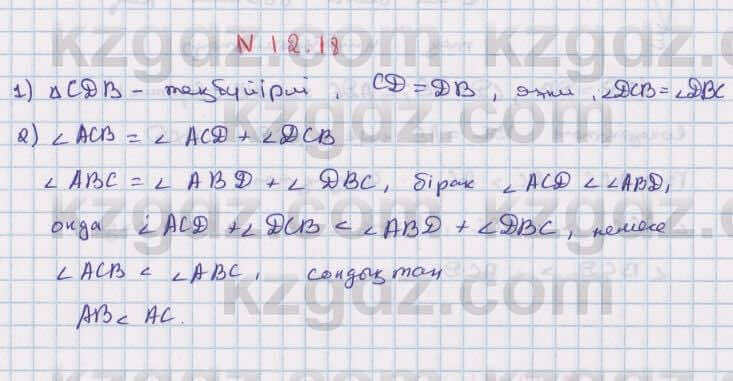 N 12.18
1) ΔCDB - теңбүйірлі, CD = DB, яғни, ∠DCB = ∠DBC
2) ∠ACB = ∠ACD + ∠DCB
∠ABC = ∠ABD + ∠DBC, бірақ ∠ACD < ∠ABD,
онда ∠ACD + ∠DCB < ∠ABD + ∠DBC, немесе
∠ACB < ∠ABC, сондықтан
AB < AC.
kzgdz.com